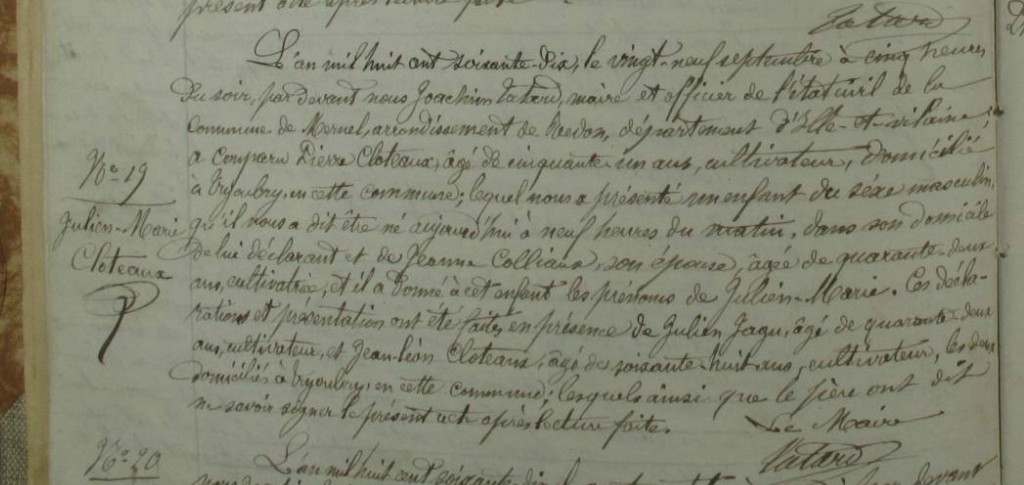 présent acte après lecture faite.
Tatard
L'an mil huit cent soixante-dix, le vingt-neuf septembre à cinq heures
du soir, par devant nous Joachim Tatard, maire et officier de l'état civil de la
commune de Mernel, arrondissement de Redon, département d'Ille-et-Vilaine,
a comparu Pierre Cloteaux, âgé de cinquante-un ans, cultivateur, domicilié
à en cette commune; lequel nous a présenté un enfant du séxe masculin,
qu'il nous a dit être né aujourd'hui à neuf heures du matin, dans son domicile
N° 19
Julien-Marie
Cloteaux
de lui déclarant et de Jeanne Colliaux, son épouse, âgée de quarante-deux
ans, cultivatrice, et il a donné à cet enfant les prénoms de Julien-Marie. Ces décla-
rations et présentation ont été faites en présence de Julien Jagu, âgé de quarante-deux
ans, cultivateur, et Jean-léon Cloteaux, âgé de soixante-huit ans, cultivateur, les deux
domiciliés à en cette commune; lesquels ainsi que le père ont dit
ne savoir signer le présent acte après lecture faite.
Le Maire
Tatard
N° 20
L'an mil huit cent soixante-dix, le
devant